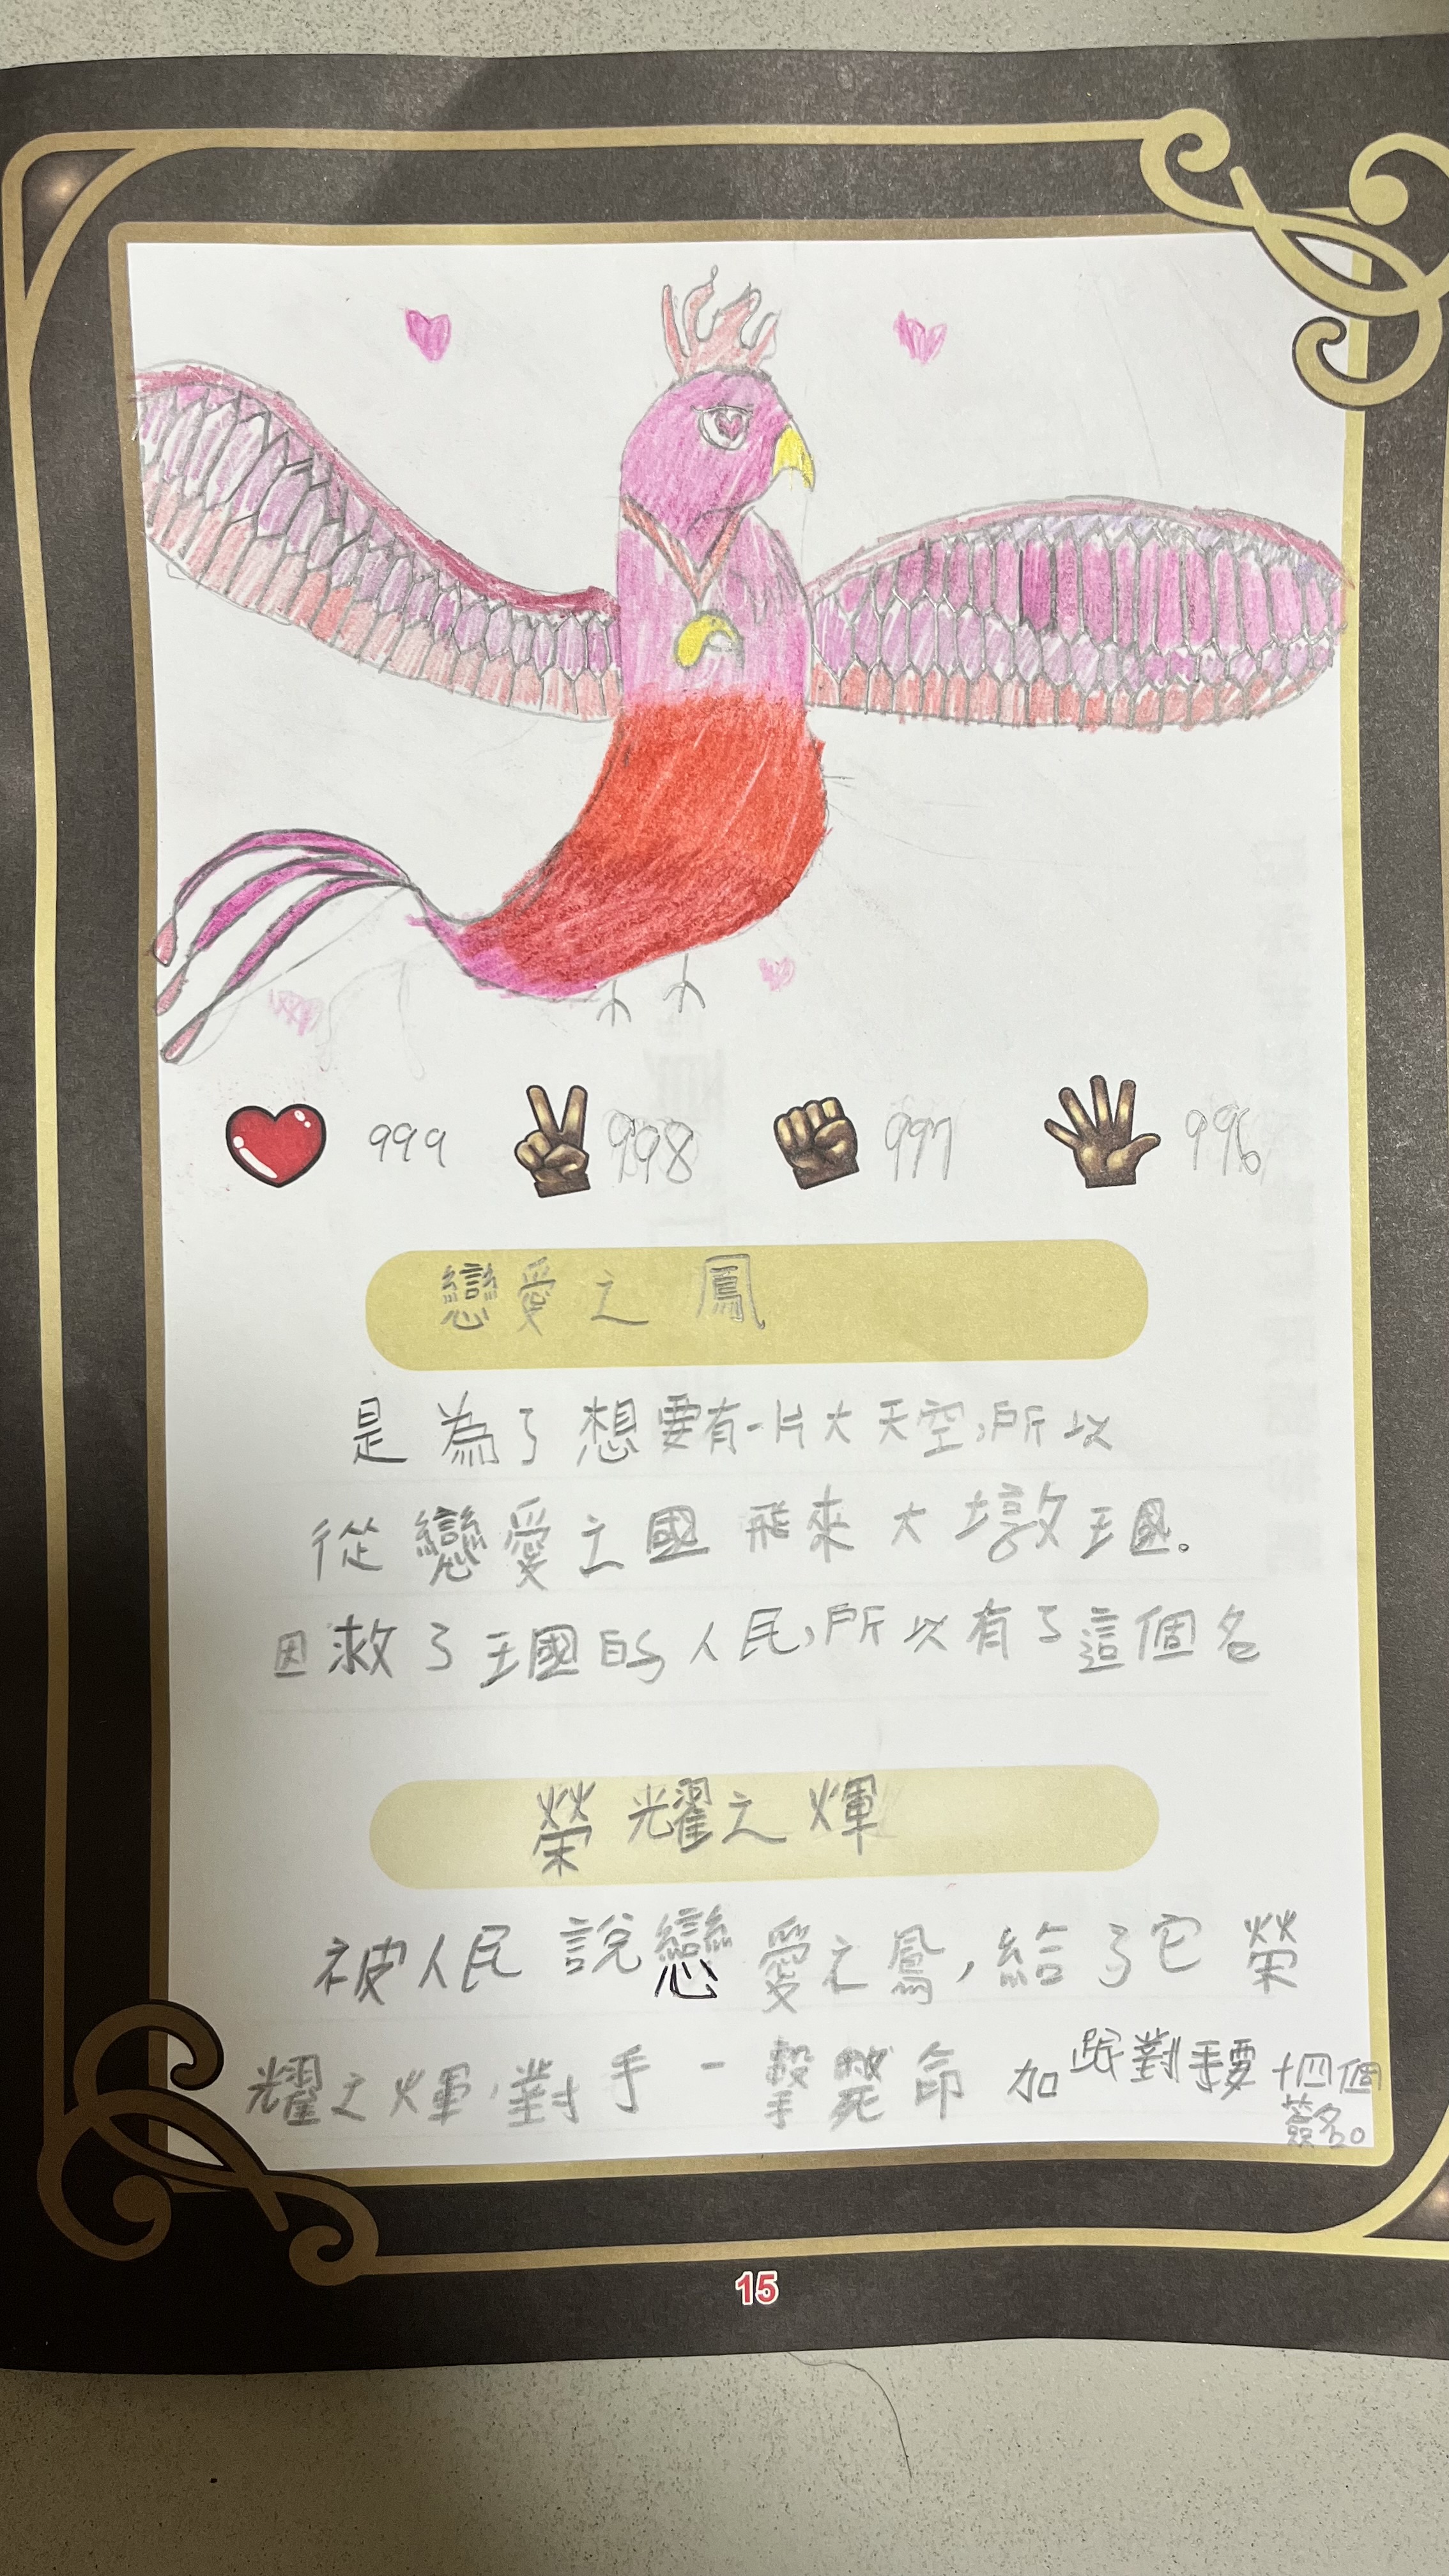 999 998 997 996
戀愛之鳳
是為了想要有一片大天空,所以
從戀愛之國飛來大墩王國。
因救了王國的人民,所以有了這個名
榮耀之煇
被人民說戀愛之鳳,給了它榮
耀之煇,對手一擊斃命 加跟對手要十四個
簽名。
15